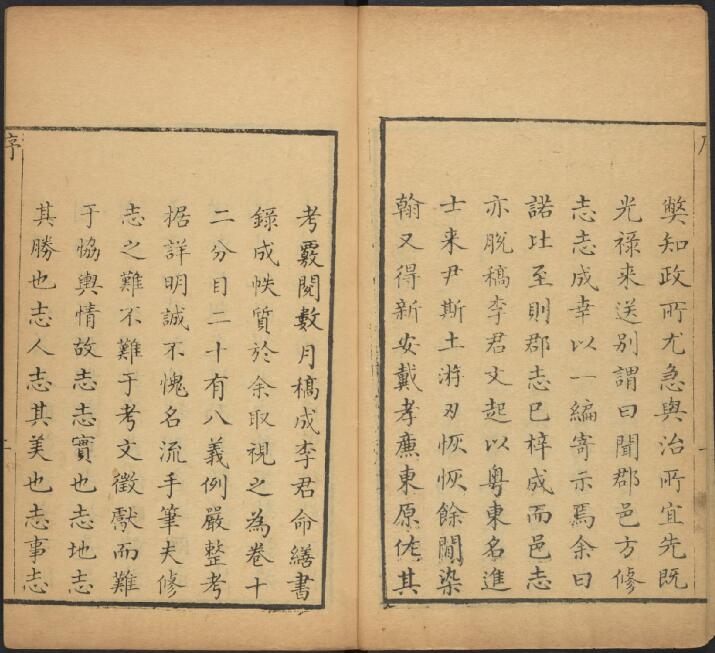 弊知政所尤急與治所宜先既
光祿来送别謂曰聞郡邑方修
志志成幸以一編寄示焉余曰
諾比至則郡志已梓成而邑志
亦脱稿李君文起以粤東名進
士来尹斯土游刃恢恢餘閒染
翰又得新安戴孝廉東原佐其
考覈閱數月稿成李君命繕書
錄成帙質於余取視之為卷十
二分目二十有八義例嚴整考
据詳明誠不愧名流手筆夫修
志之難不難于考文徵獻而難
于恊輿情故志志實也志地志
其勝也志人志其美也志事志
序